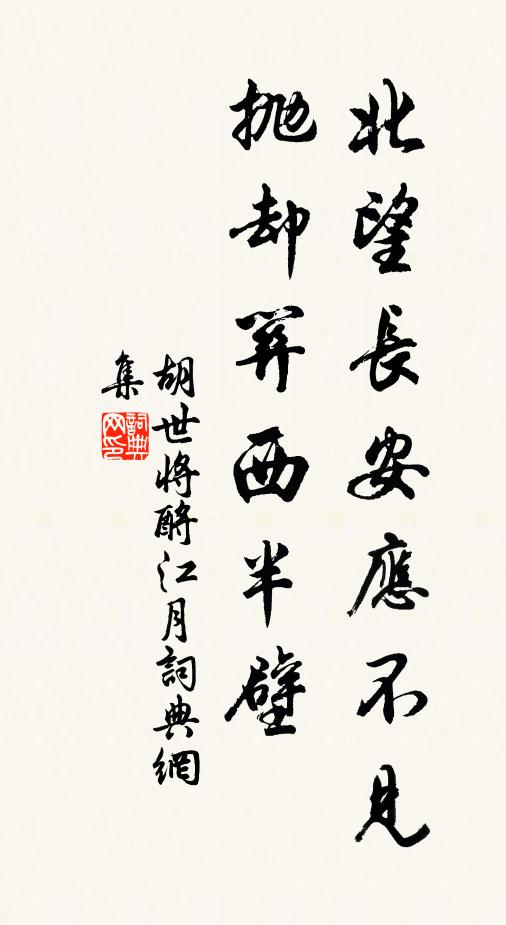 北望長安應不見
抛却關西半壁
胡世將酹江月詞典網
集
詞典
网印